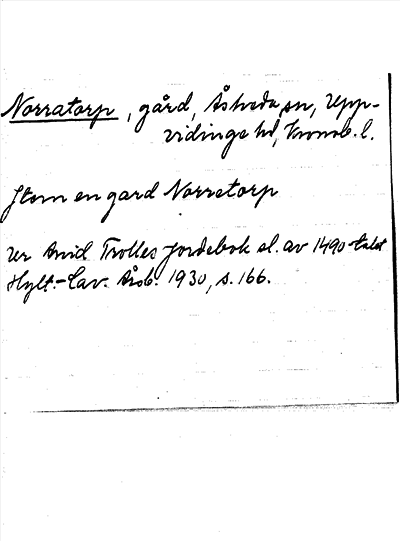 Norratorp, gård, Åsheda sn, Upp-
vidinge hd, Kronob. l.
Item en gard Norretorp
Ur Arvid Trolles jordebok sl. av 1490-talet
Hylt.-Cav. Årsb. 1930, s. 166.